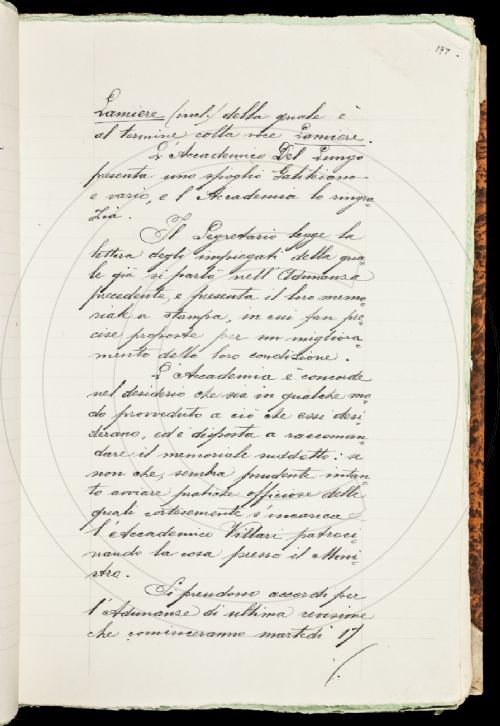 147.
Lamiere (incl.) della quale è
al termine colla voce Lamiere.
L'Accademico Del Lungo
presenta uno spoglio Galileiano
e vario, e l'Accademia lo ringra=
zia.
Il Segretario legge la
lettera degli impiegati della qua=
le già si parlò nell'Adunanza
precedente, e presenta il loro memo=
riale a stampa, in cui fan pre=
cise proposte per un migliora=
mento della loro condizione.
L'Accademia è concorde
nel desiderio che sia in qualche mo=
do provveduto a ciò che essi desi=
derano, ed è disposta a raccoman=
dare il memoriale suddetto: se
non che, sembra prudente intan=
to avviare pratiche officiose delle
quali cortesemente s'incarica
l'Accademico Villari patroci=
nando la cosa presso il Mini=
stro.
Si prendono accordi per
l'Adunanze di ultima revisione
che cominceranno martedì 17